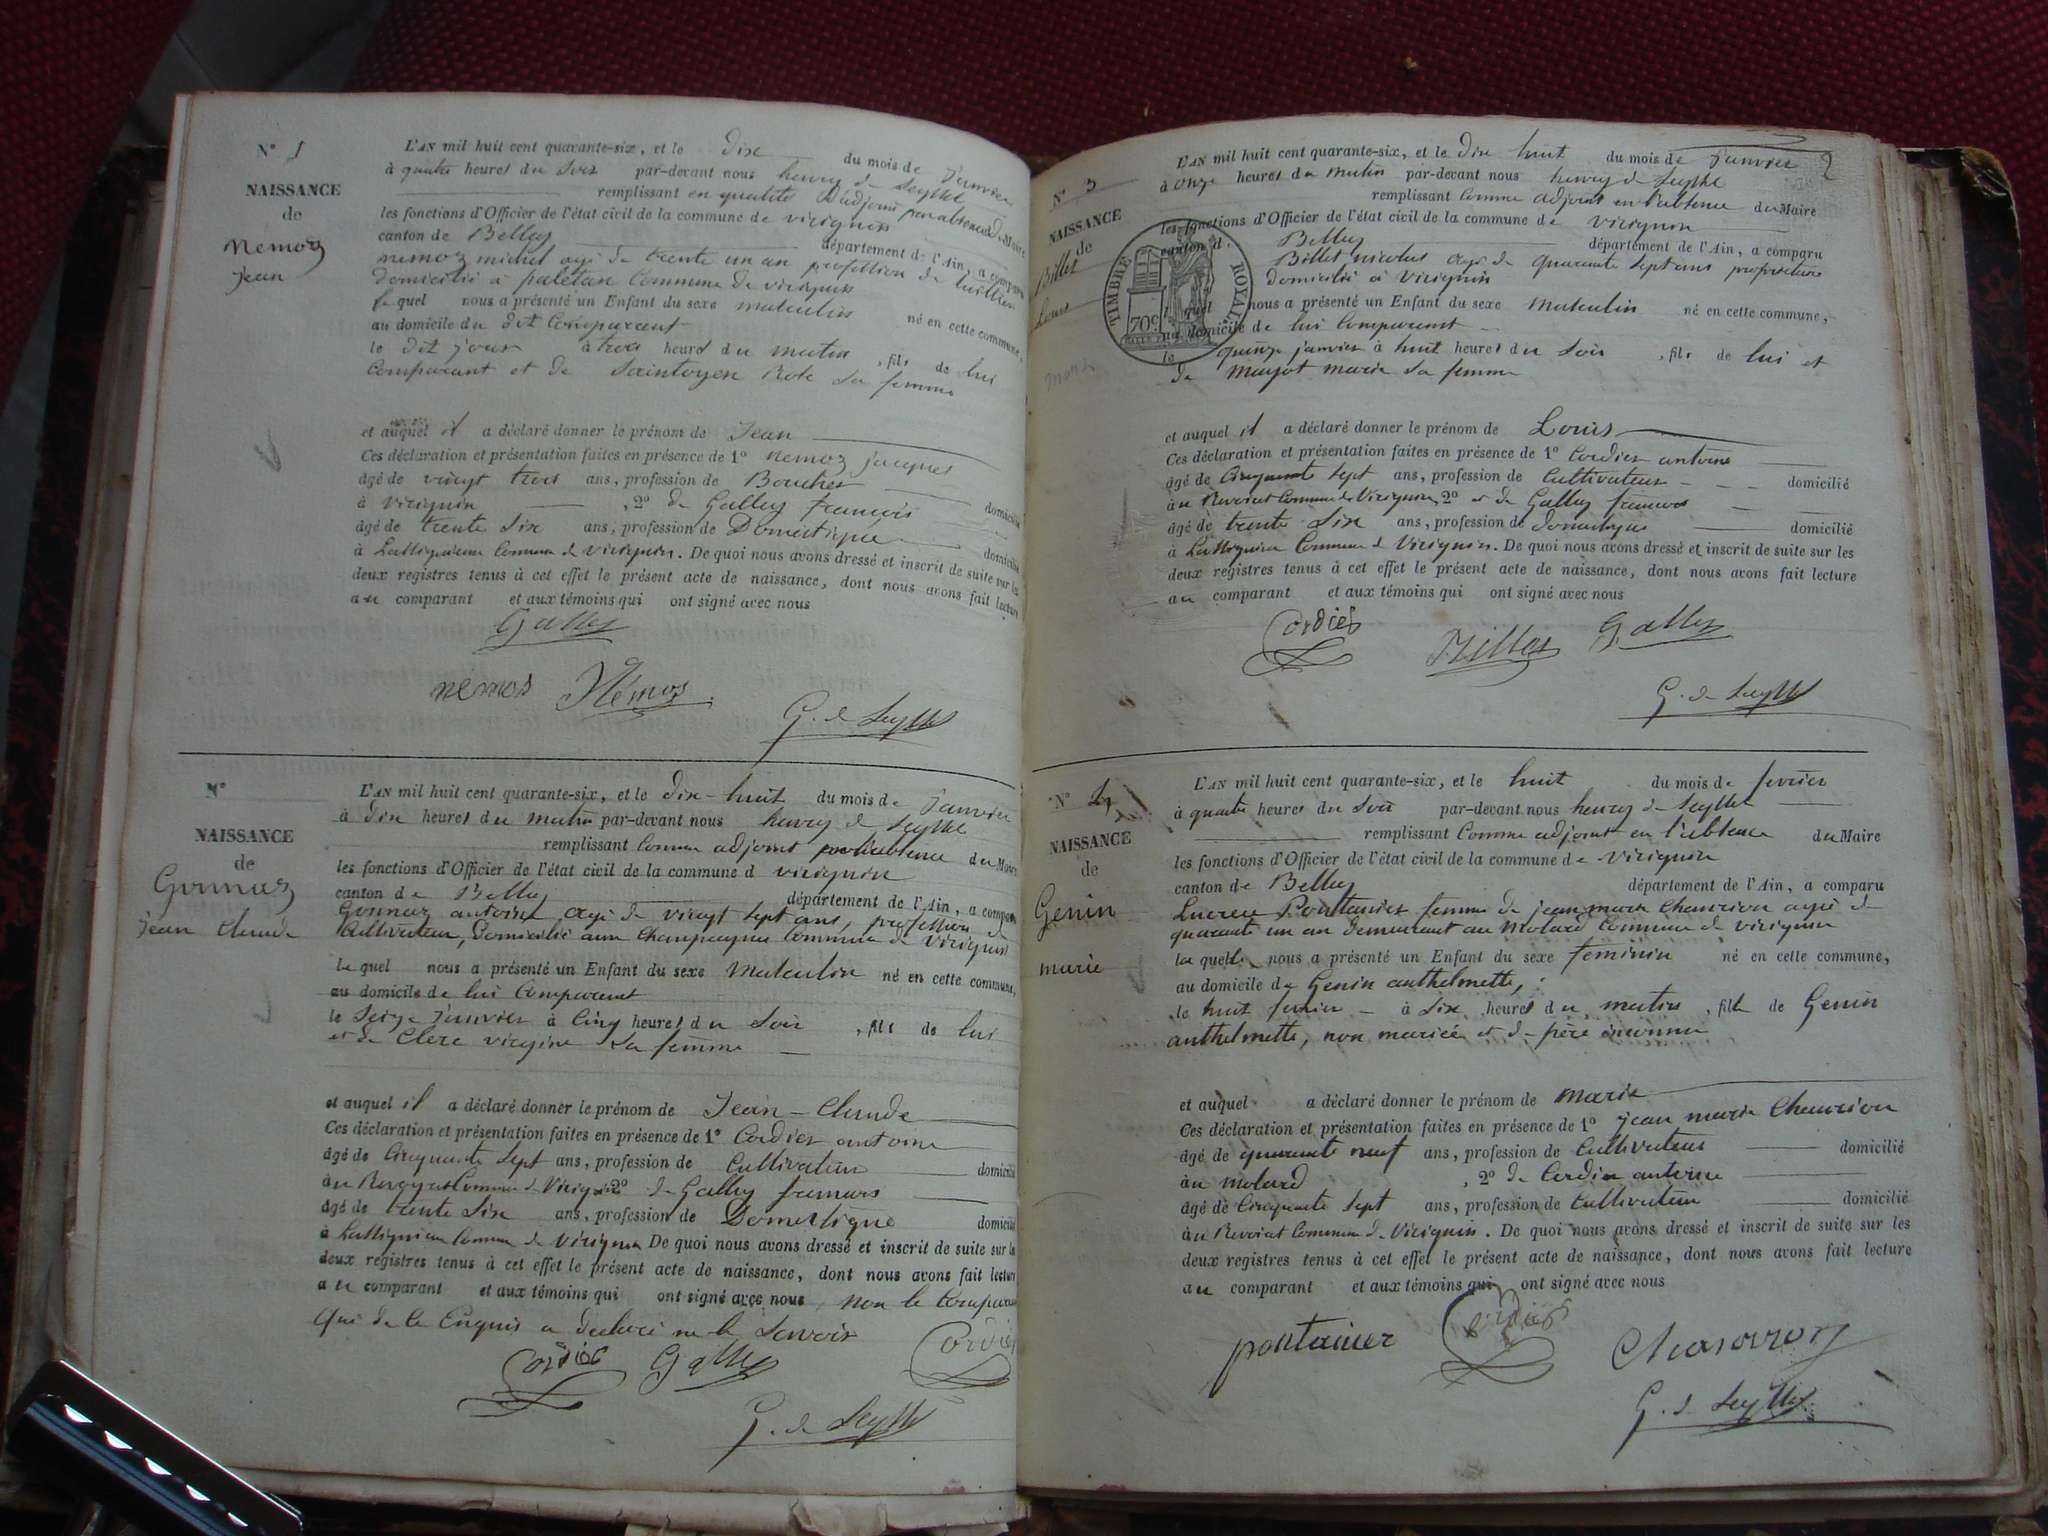 N° 1
NAISSANCE
de
Nemoz
Jean
L'AN mil huit cent quarante-six, et le dix du mois de Janvier
à quatre heures du Soir par-devant nous henry de Seyssel
remplissant en qualité d'adjoint par absence du Maire
les fonctions d'Officier de l'état civil de la commune de virignin
canton de Belley département de l'Ain, a comparu
nemoz michel agé de trente un an profession de
domicilié à commune de virignin
le quel nous a présenté un Enfant du sexe masculin né en cette commune,
au domicile du dit Comparant
le dit jour à trois heures du matin, fils de lui
Comparant et de Saintoyen Rose Sa femme
et auquel il a déclaré donner le prénom de Jean
Ces déclaration et présentation faites en présence de 1° nemoz jacques
âgé de vingt trois ans, profession de Boucher domicilié
à virignin, 2° de Galley francois
âgé de trente Six ans, profession de Domestique domicilié
à Commune de virignin. De quoi nous avons dressé et inscrit de suite sur les
deux registres tenus à cet effet le présent acte de naissance, dont nous avons fait lecture
au comparant et aux témoins qui ont signé avec nous
Galley
nemos Némoz
G. de Seyssel
N°
NAISSANCE
de
jean Claude
L'AN mil huit cent quarante-six, et le dix-huit du mois de Janvier
à dix heures du matin par-devant nous henry de Seyssel
remplissant Comme adjoint l'absence du Maire
les fonctions d'Officier de l'état civil de la commune d virignin
canton de Belley département de l'Ain, a comparu
antoine agé de vingt sept ans, profession de
Cultivateur, Domicilié aux Champagnes Commune de Virignin
le quel nous a présenté un Enfant du sexe Masculin né en cette commune,
au domicile de lui Comparant
le Seize janvier à Cinq heures du Soir, fils de lui
et de Clerc virginie Sa femme
et auquel il a déclaré donner le prénom de Jean-Claude
Ces déclaration et présentation faites en présence de 1° Cordier antoine
âgé de Cinquante Sept ans, profession de Cultivateur domicilié
au Commune de Virignin 2° de Galley francois
âgé de trente Six ans, profession de Domestique domicilié
à Commune de Virignin De quoi nous avons dressé et inscrit de suite sur les
deux registres tenus à cet effet le présent acte de naissance, dont nous avons fait lecture
au comparant et aux témoins qui ont signé avec nous, non le Comparant
Qui de ce Enquis a declaré ne le Savoir
Cordier Galley Cordier
G. de Seyssel
2
N° 3
NAISSANCE
de
Billet
Louis
TIMBRE ROYAL
70c
L'AN mil huit cent quarante-six, et le dix huit du mois de janvier
à onze heures du matin par-devant nous henry de Seyssel
remplissant Comme adjoint en l'absence du Maire
les fonctions d'Officier de l'état civil de la commune de virignin
canton d. Belley département de l'Ain, a comparu
Billet nicolas agé de quarante sept ans propriétaire
domicilié à Virignin
l quel nous a présenté un Enfant du sexe masculin né en cette commune,
au domicile de lui Comparant
le quinze janvier à huit heures du Soir, fils de lui et
de marie Sa femme
et auquel il a déclaré donner le prénom de Louis
Ces déclaration et présentation faites en présence de 1° Cordier antoine
âgé de Cinquante sept ans, profession de Cultivateur domicilié
au Revoirat Commune de Virignin, 2° et de Galley francois
âgé de trente Six ans, profession de domestique domicilié
à Commune de Virignin. De quoi nous avons dressé et inscrit de suite sur les
deux registres tenus à cet effet le présent acte de naissance, dont nous avons fait lecture
au comparant et aux témoins qui ont signé avec nous
Cordier Billet Galley
G. de Seyssel
N° 4
NAISSANCE
de
Genin
marie
L'AN mil huit cent quarante-six, et le huit du mois de fevrier
à quatre heures du Soir par-devant nous henry de Seyssel
remplissant Comme adjoint en l'absence du Maire
les fonctions d'Officier de l'état civil de la commune de virignin
canton de Belley département de l'Ain, a comparu
femme de jean marie agée de
quarante un an demeurant au Molard Commune de virignin
la quelle nous a présenté un Enfant du sexe feminin né en cette commune,
au domicile de Genin anthelmette,
le huit fevrier à Six heures du matin, fille de Genin
anthelmette, non mariée et de père inconnu
et auquel a déclaré donner le prénom de marie
Ces déclaration et présentation faites en présence de 1° jean marie
âgé de quarante neuf ans, profession de Cultivateur domicilié
au molard, 2° de Cordier antoine
âgé de Cinquante Sept ans, profession de Cultivateur domicilié
au Revoirat Commune de Virignin. De quoi nous avons dressé et inscrit de suite sur les
deux registres tenus à cet effet le présent acte de naissance, dont nous avons fait lecture
au comparant et aux témoins qui ont signé avec nous
Cordier
G. de Seyssel